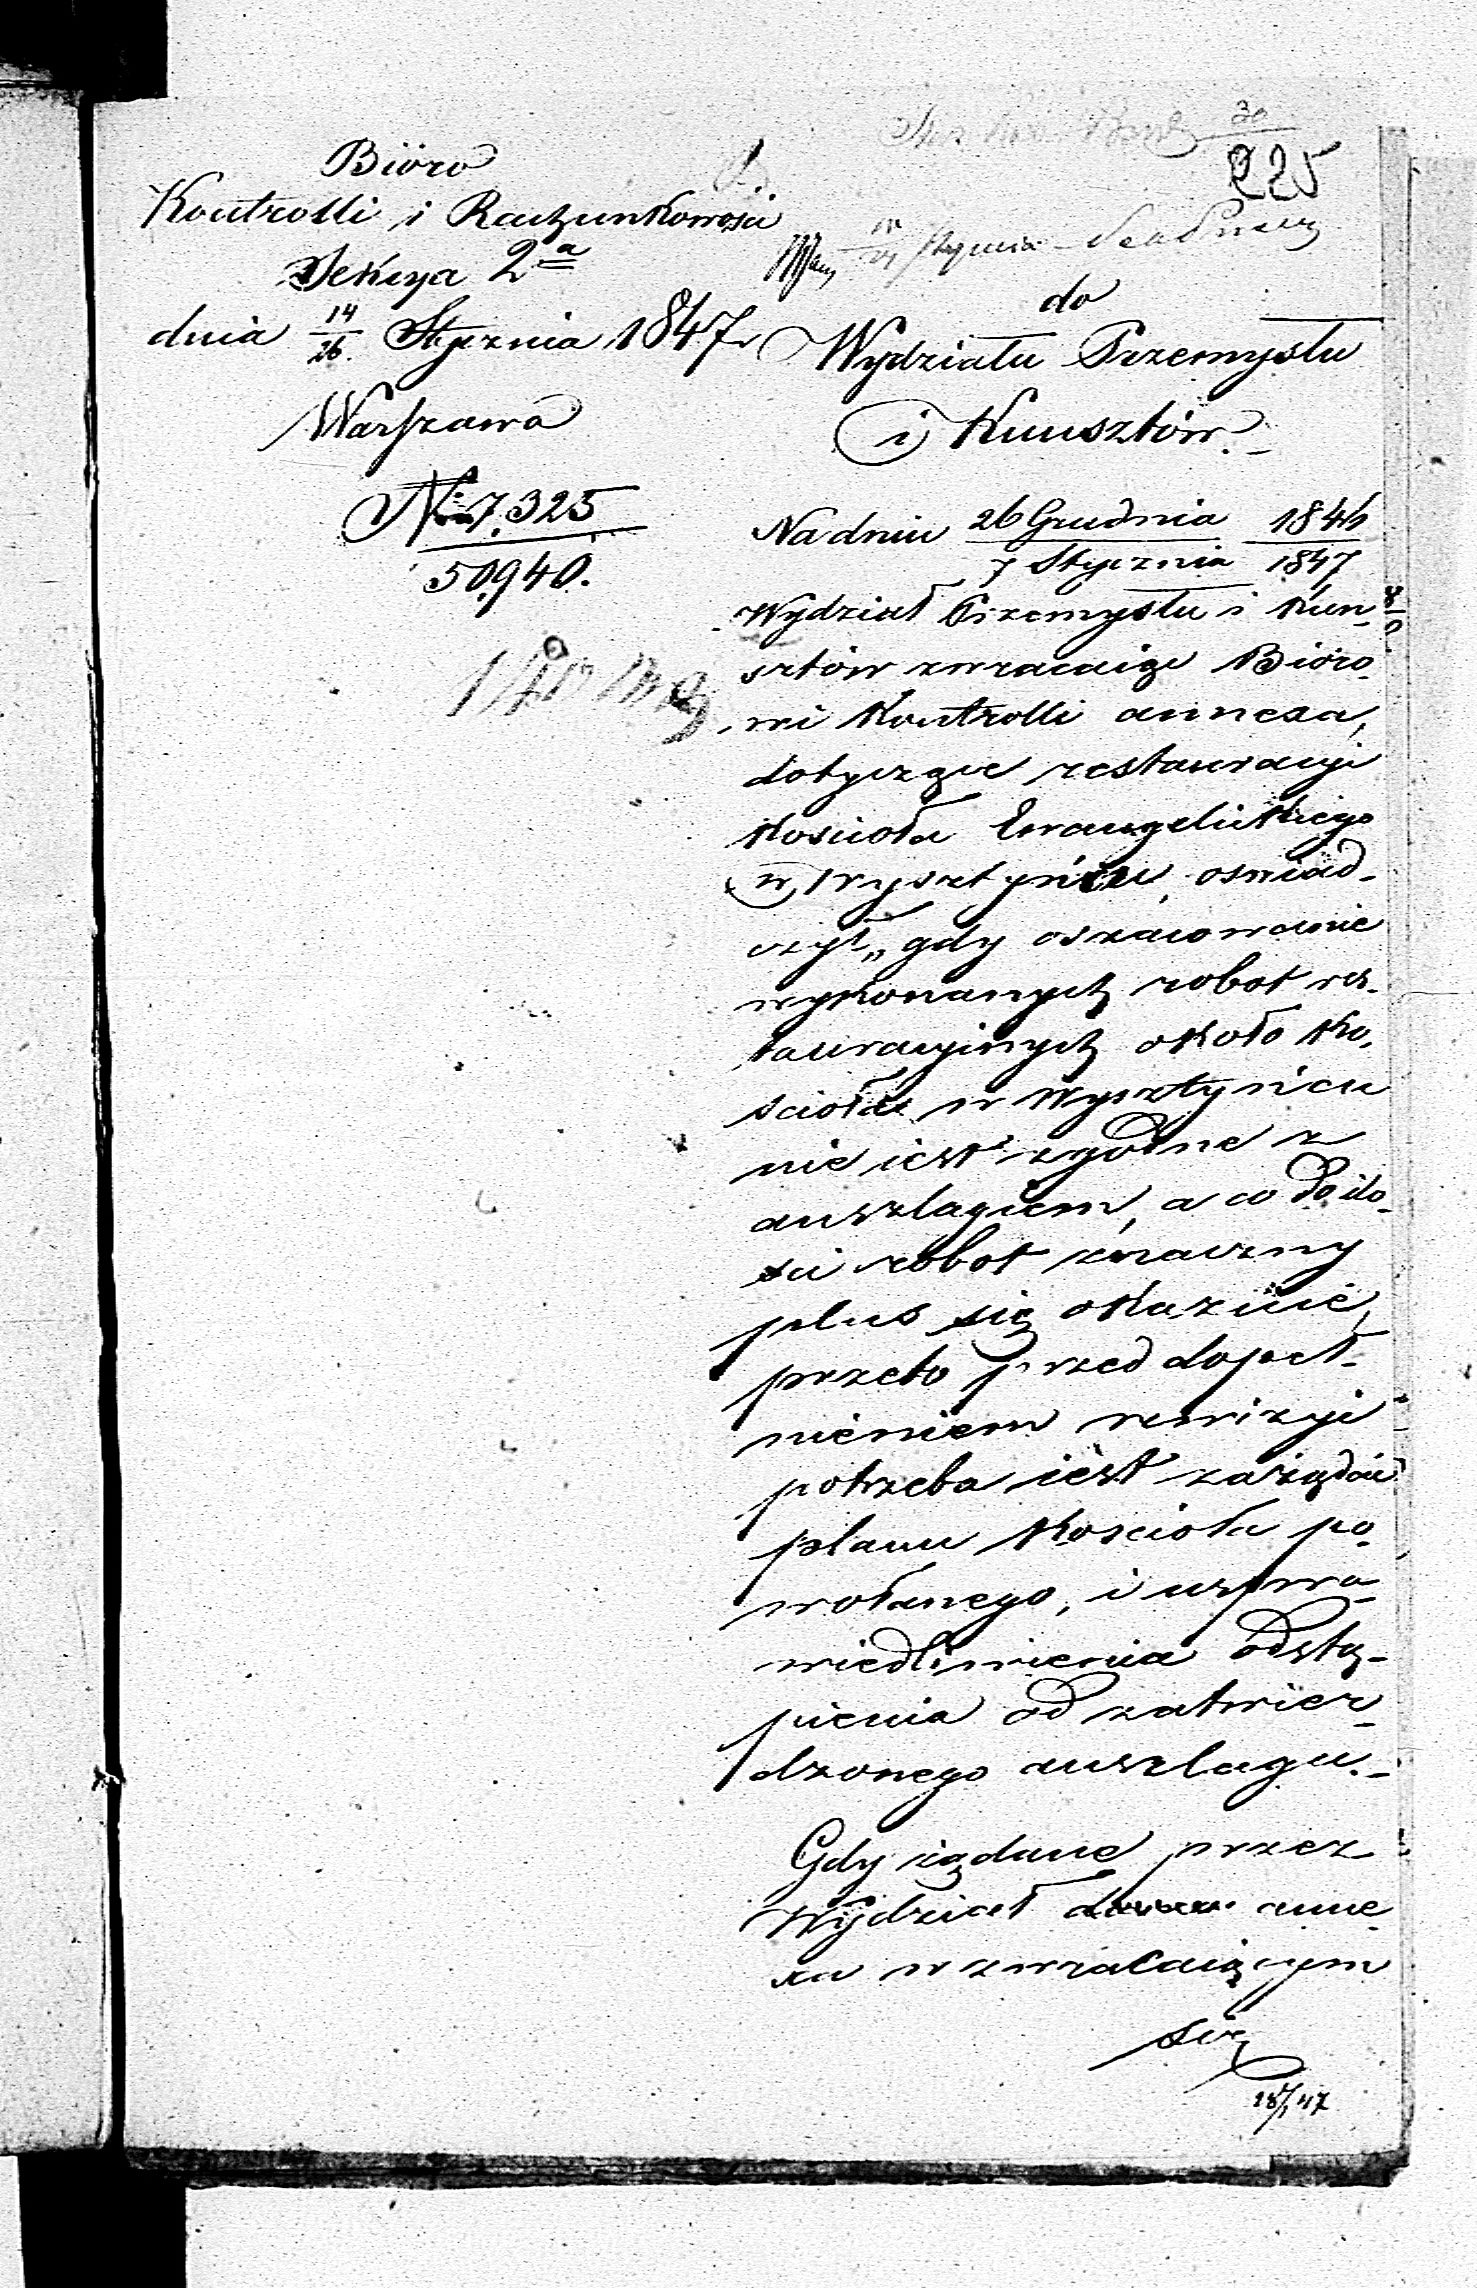 30
225
Biöro
Kontrolli i Rachunkowości
Sekcya 2a
dnia 14/26 Stycznia 1847 r
Warszawa
No 7,325
50940.
Stycznia
do
Wydziału Przemysłu
i Kunsztów.
Na dniu 26 Grudnia 1846
7 Stycznia 1847
Wydział Przemysłu i Kun-
sztów zwracaiąc Bióro-
wi Kontrolli annexa,
dotyczące restauracyi
Kościoła Ewangelickiego
w Wysztyńcu, oświad-
czył „gdy oszacowanie
wykonanych robot res-
tauracyinych około Ko-
ścioła w Wysztyńcu
nie iest zgodne z
anszlagiem, a co do ilo-
ści robot znaczny
plus się okazuie,
przeto przed dopeł-
nieniem rewizyi
potrzeba iest zażądać
planu Kościoła po-
wołanego, i uspra-
wiedliwienia odstą-
pienia od zatwier-
dzonego anszlagu.-
Gdy żądane przez
Wydział anne-
xa w zwracaiącym
się
18/1 47